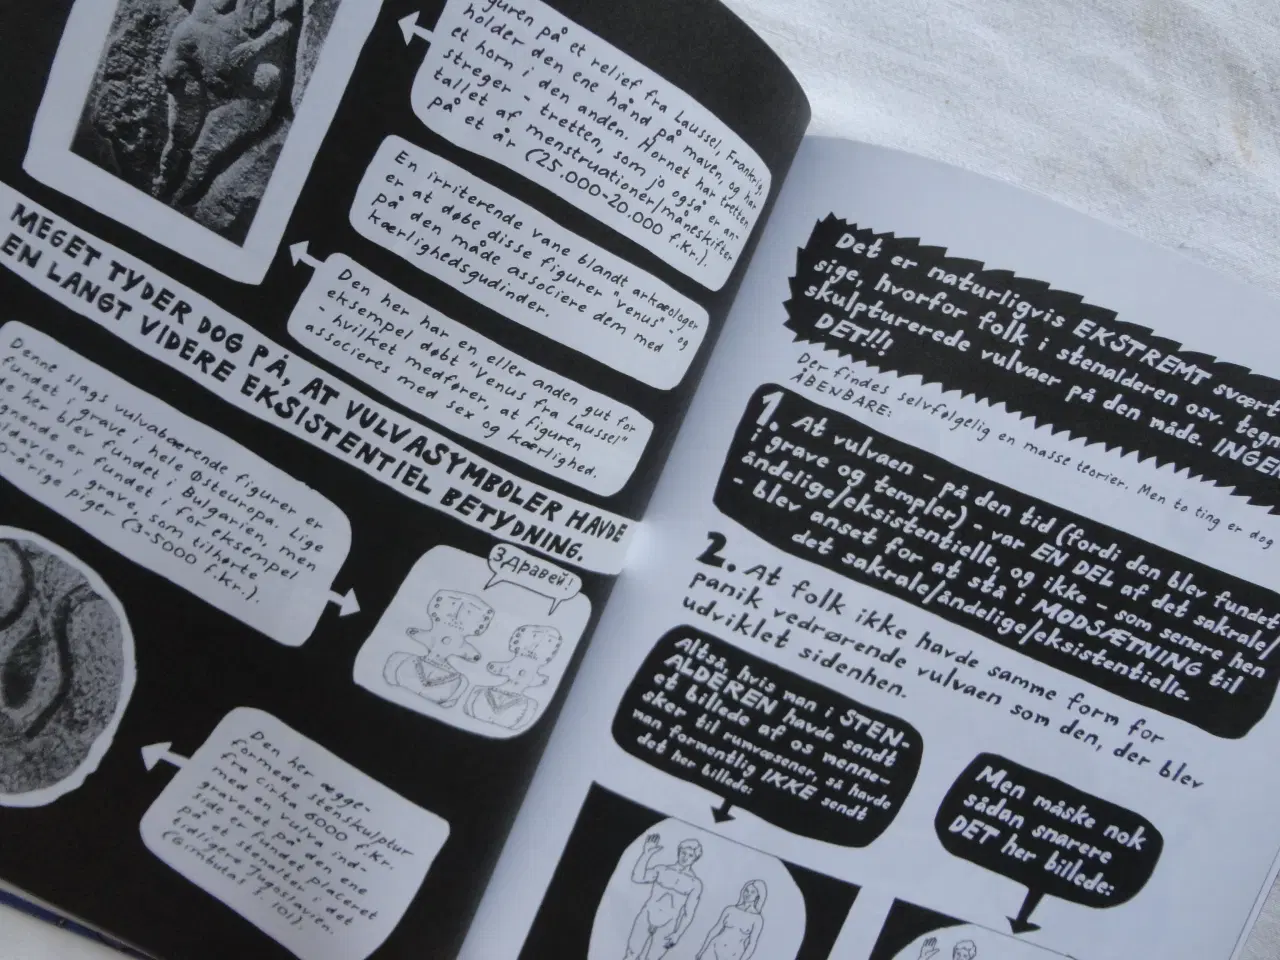 guren på et relief fra Laussel, Frankrig,
holder den ene hånd på maven, og har
et horn i den anden. Hornet har tretten
streger - tretten, som jo også er an-
tallet af menstruationer/måneskifter
på et år (25.000-20.000 f.Kr.).
En irriterende vane blandt arkæologer
er at døbe disse figurer "Venus" - og
på den måde associere dem med
kærlighedsgudinder.
Den her har en eller anden gut for
eksempel døbt "Venus fra Laussel"
- hvilket medfører, at figuren
associeres med sex og kærlighed.
MEGET TYDER DOG PÅ, AT VULVASYMBOLER HAVDE
EN LANGT VIDERE EKSISTENTIEL BETYDNING.
Denne slags vulvabærende figurer er
fundet i grave i hele Østeuropa. Lige
de her blev fundet i Bulgarien, men
gnende er fundet i for eksempel
ldavien i grave, som tilhørte
0-årige piger (3-5000 f.Kr.).
Здравей!
Den her ægge-
formede stenskulptur
fra cirka 6000 f.Kr.
med en vulva ind-
graveret på den ene
side er fundet placeret
på et stenalter i det
tidligere Jugoslavien.
(Gimbutas s. 101).
Det er naturligvis EKSTREMT svært
sige, hvorfor folk i stenalderen osv. tegn
skulpturerede vulvaer på den måde. INGEN
DET!!!
Der findes selvfølgelig en masse teorier. Men to ting er dog
ÅBENBARE:
1. At vulvaen - på den tid (fordi den blev fundet
i grave og templer) - var EN DEL af det sakrale/
åndelige/eksistentielle, og ikke - som senere hen
- blev anset for at stå i MODSÆTNING til
det sakrale/åndelige/eksistentielle.
2. At folk ikke havde samme form for
panik vedrørende vulvaen som den, der blev
udviklet sidenhen.
Altså, hvis man i STEN-
ALDEREN havde sendt
et billede af os menne-
sker til rumvæsener, så havde
man formentlig IKKE sendt
det her billede:
Men måske nok
sådan snarere
DET her billede: